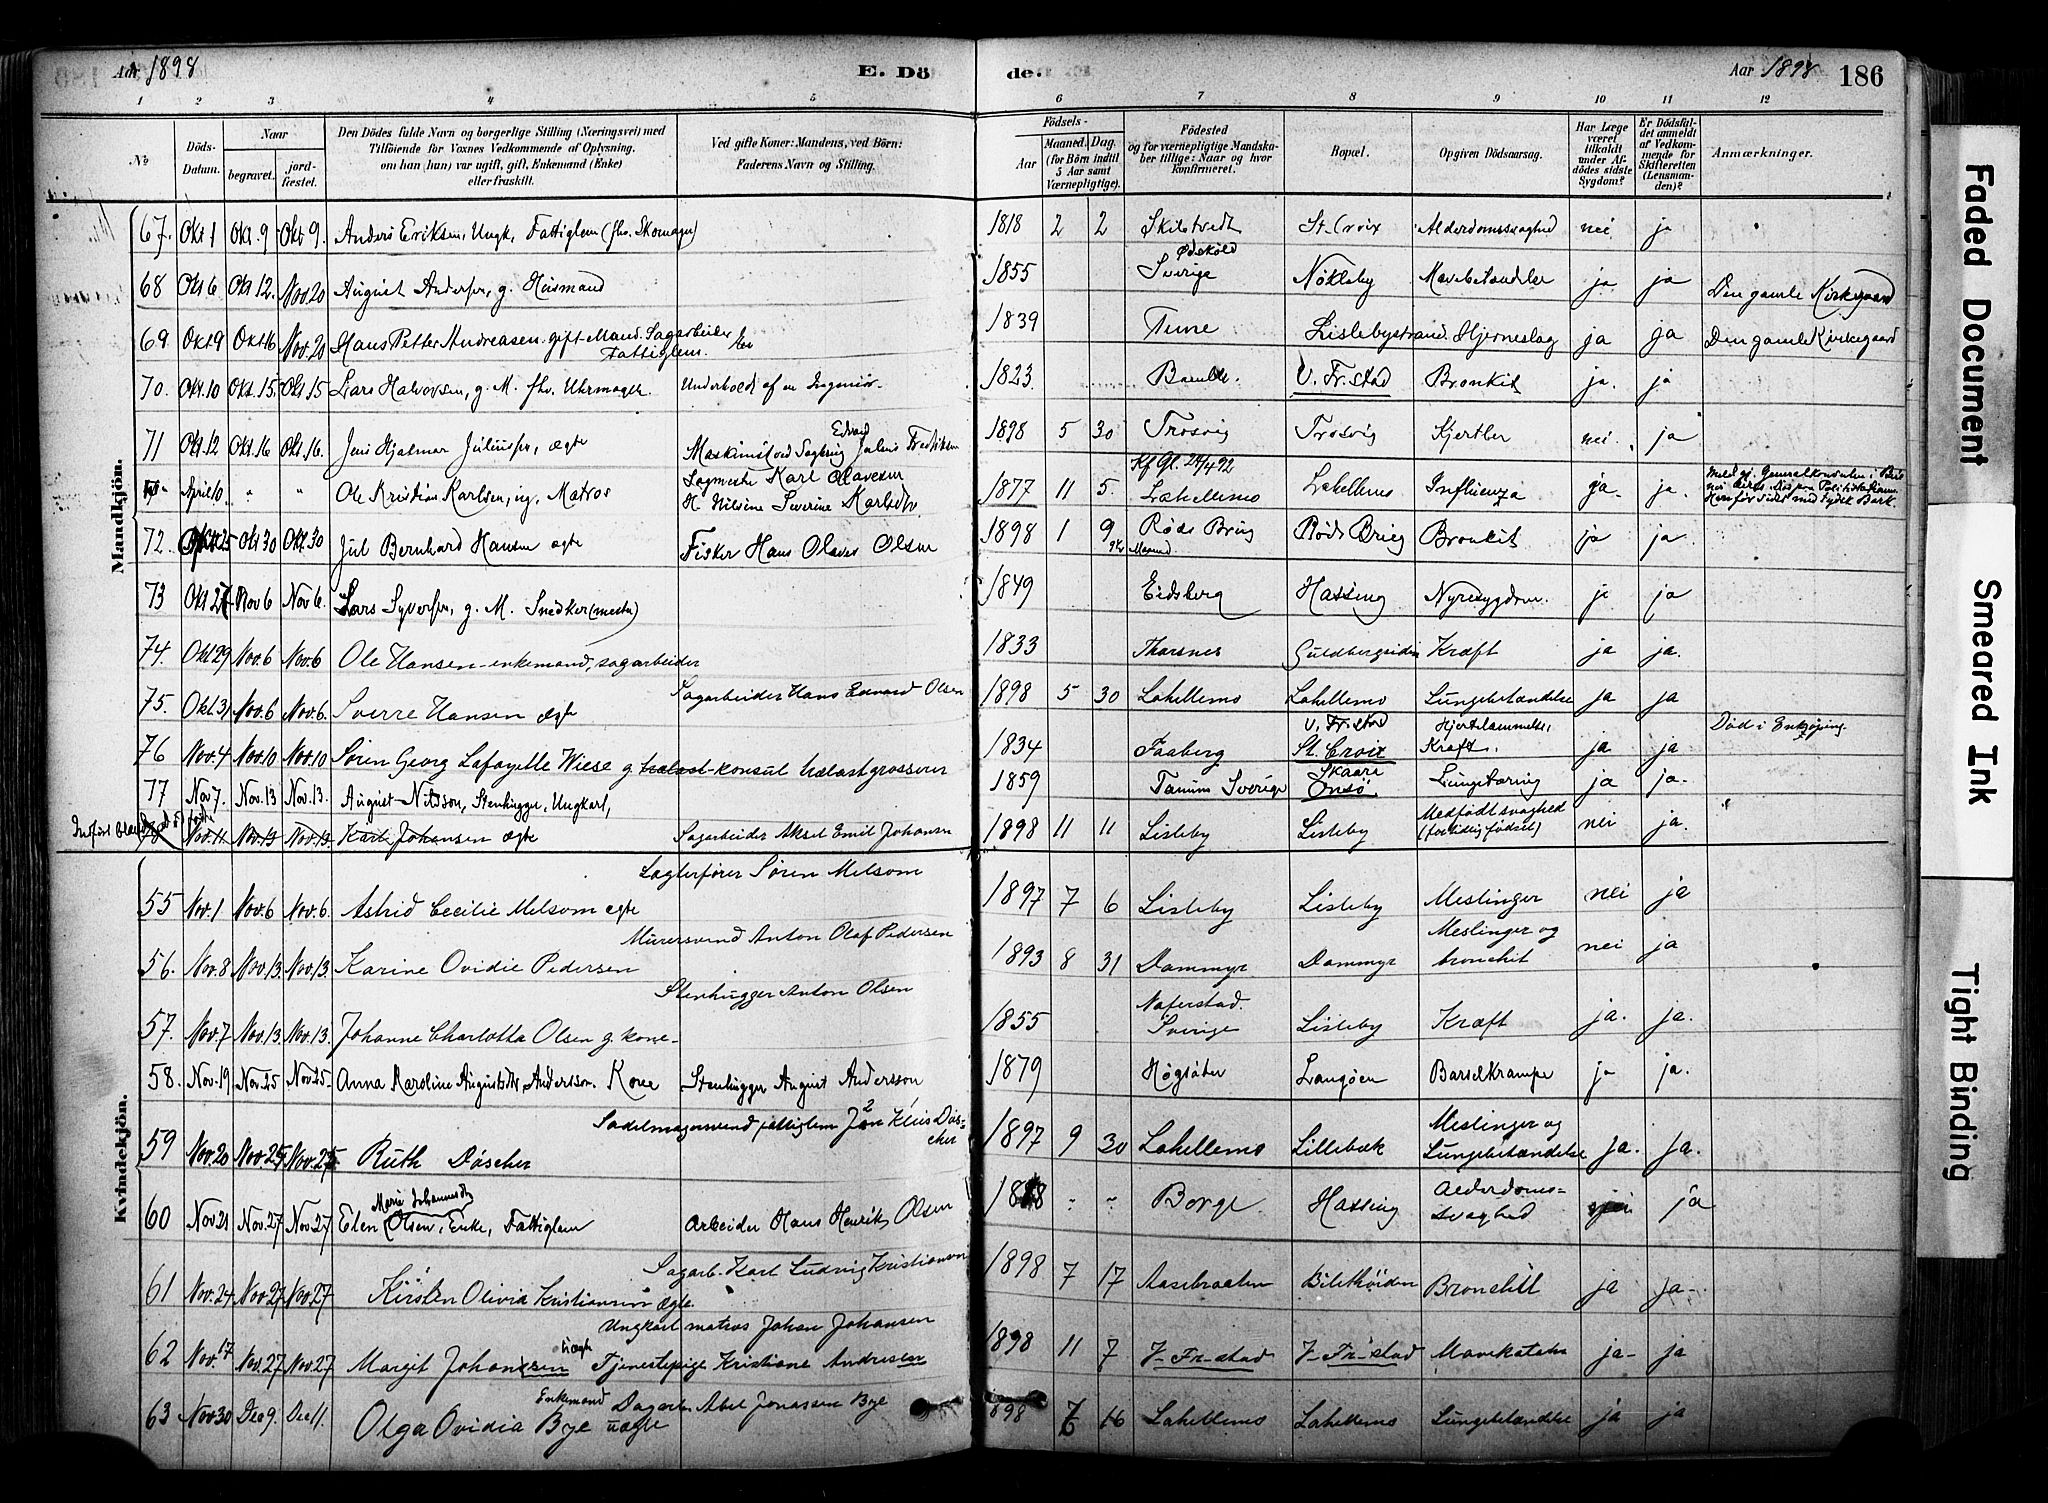 Aar 1898 E. Dö
de. Aar 1898 186
1 2 3 4 5 6 7 8 9 10 11 12
No Döds-Datum. Naar begravet. jord-fæstet. Den Dödes fulde Navn og borgerlige Stilling (Næringsvei) med Tilföiende for Voxnes Vedkommende af Oplysning, om han (hun) var ugift, gift, Enkemand (Enke) eller fraskilt. Ved gifte Koner: Mandens, ved Börn: Faderens Navn og Stilling. Födsels- Aar Maaned. Dag. (for Börn indtil 5 Aar samt Værnepligtige). Födested og for værnepligtige Mandskaber tillige: Naar og hvor konfirmeret. Bopæl. Opgiven Dödsaarsag. Har Læge været tilkaldt under Afdödes sidste Sygdom? Er Dödsfaldet anmeldt af Vedkommende for Skifteretten (Lensmanden)? Anmærkninger.
Mandkjön.
67. Okt 1 Okt. 9 Okt 9. Anders Eriksen, Ungk, Fattiglem (fhv. Skomager) 1818 2 2 Skibtvedt St. Croix Alderdomssvaghed nei ja
68 Okt 6 Okt 12. Nov. 20 August Andersen, g. Husmand 1855 Ödsköld Sverige Nökleby Mavebetændelse ja ja Den gamle Kirkegaard
69. Okt 9 Okt 16 Nov. 20 Hans Petter Andreasen. gift Mand. Sagarbeider Fattiglem. 1839 Tune Lislebystrand. Hjerneslag ja ja Den gamle Kirkegaard
70. Okt. 10 Okt. 15. Okt 15 Lars Halvorsen, g. M. fhv. Uhrmager. Underholdt af en Ingeniör. 1823. Bamble. V. Fr.stad Bronkit ja. ja
71 Okt. 12 Okt. 16 Okt. 16. Jens Hjalmar Juliussen, ægte Maskinist ved Sagbrug Edvard Julius Fredriksen 1898 5 30 Trosvig Trosvig Kjertler nei. ja
April 10. " " Ole Kristian Karlsen, ug. Matros Sagmester Karl Olavesen H. Nilsine Severine Karlsdtr. 1877 11 5. Kf Gl. 24/4 92 Lahellemo Lahellemo Influenza ja. ja.
72. Okt 25 Okt 30 Okt. 30 Jul Bernhard Hansen ægte Fisker Hans Olaves Olsen 1898 1 9 Röds Brug Röds Brug Bronkit ja ja
73 Okt 27 Nov 6 Nov 6. Lars Syversen, g. M. Snedker(mester) 1849 Eidsberg Hassing Nyresygdom. ja ja
74. Okt. 29 Nov. 6 Nov. 6 Ole Hansen-enkemand, sagarbeider 1833 Tharsnes Guldbergsiden Kræft ja ja.
75. Okt. 31 Nov. 6 Nov. 6. Sverre Hansen ægte Sagarbeider Hans Edvard Olsen 1898 5 30 Lahellemo Lahellemo Lungebetændelse ja ja
76 Nov. 4 Nov. 10 Nov. 10 Sören Georg Lafayette Wiese g trælast-konsul trælastgrosserer 1834 Faaberg V. Fr.stad St. Croix Hjertelammelse. Kræft. ja ja Död i Enköping.
77 Nov 7. Nov. 13 Nov. 13. August Nilsson, Stenhugger, Ungkarl, 1859 Tanum Sverige Skaare Onsö. Lungetæring ja ja.
78 Nov. 11 Nov. 13 Nov. 13. Karl Johansen ægte Sagarbeider Aksel Emil Johansen 1898 11 11 Lisleby Lisleby Medfödt svaghed (for tidlig födsel) nei ja.
Kvindekjön.
55 Nov. 1 Nov. 6 Nov. 6. Astrid Cecilie Melsom ægte Lagterförer Sören Melsom 1897 7 6 Lisleby Lisleby Meslinger nei ja
56. Nov. 8 Nov. 13. Nov. 13. Karine Ovidie Pedersen Murersvend Anton Olaf Pedersen 1893 8 31 Dammyr Dammyr Meslinger og bronchit nei ja
57. Nov. 7 Nov. 13. Nov. 13. Johanne Charlotta Olsen g. kone- Stenhugger Anton Olsen 1855 Naverstad. Sverige Lisleby Kræft ja. ja.
58. Nov. 19 Nov. 25 Nov 25. Anna Karoline Augustsdtr. Andersson. Kone Stenhugger August Andersson 1879 Högsäter Langöen Barselkrampe ja ja.
59 Nov. 20 Nov. 25 Nov. 25 Ruth Däscher Sadelmagersvend, fattiglem Däscher 1897 9 30 Lahellemo Lillebæk Meslinger og Lungebetændelse ja. ja.
60 Nov 21 Nov. 27 Nov. 27 Elen Marie Johannesdtr Olsen, Enke, Fattiglem Arbeider Hans Henrik Olsen " " Borge Hassing Alderdoms-svaghed ja
61 Nov. 24 Nov. 27 Nov. 27 Kirsten Olivia Kristiansen ægte. Sagarb. Karl Ludvig Kristiansen 1898 7 17 Aasebraaten Bronchitt ja ja-
62 Nov. 17 Nov. 27 Nov. 27 Margit Johansen uægte Ungkarl matros Johan Johansen Tjenestepige Kristiane Andresen 1898 11 7 V-Fr-stad V-Fr-stad Mavekatarr ja- ja
63 Nov 30 Dec 9. Dec 11. Olga Ovidia Bye uægte Enkemand Dagarb. Abel Jonassen Bye 1898 7 16 Lahellemo Lahellemo Lungebetændelse ja ja
Faded Document
Smeared Ink
Tight Binding